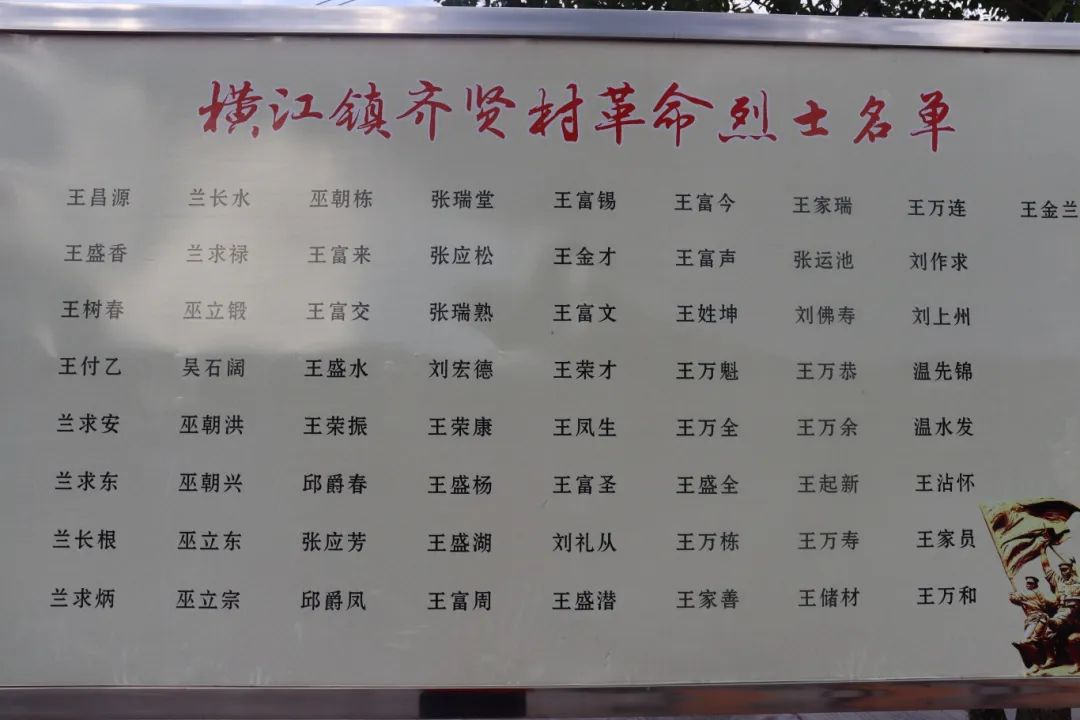 横江镇齐贤村革命烈士名单
王昌源 兰长水 巫朝栋 张瑞堂 王富锡 王富今 王家瑞 王万连 王金兰
王盛香 兰求禄 王富来 张应松 王金才 王富声 张运池 刘作求
王树春 巫立锻 王富交 张瑞熟 王富文 王姓坤 刘佛寿 刘上州
王付乙 吴石阔 王盛水 刘宏德 王荣才 王万魁 王万恭 温先锦
兰求安 巫朝洪 王荣振 王荣康 王凤生 王万全 王万余 温水发
兰求东 巫朝兴 邱爵春 王盛杨 王富圣 王盛全 王起新 王沾怀
兰长根 巫立东 张应芳 王盛湖 刘礼从 王万栋 王万寿 王家员
兰求炳 巫立宗 邱爵凤 王富周 王盛潜 王家善 王储材 王万和